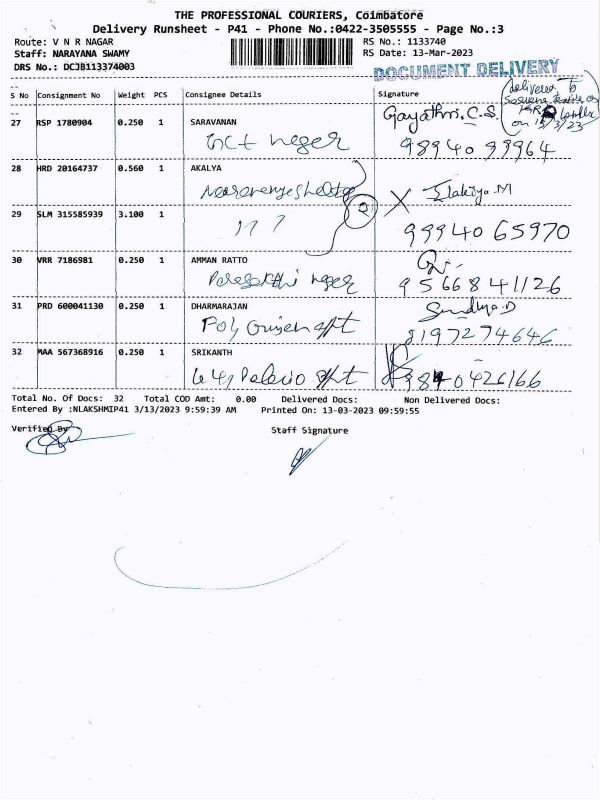 THE PROFESSIONAL COURIERS, Coimbatore
Delivery Runsheet - P41 - Phone No.:0422-3505555 - Page No.:3
Route: V N R NAGAR
Staff: NARAYANA SWAMY
DRS No.: DCJB113374003
RS No.: 1133740
RS Date: 13-Mar-2023
DOCUMENT DELIVERY
delivered to
on 15/3/23
S No Consignment No Weight PCS Consignee Details Signature
27 RSP 1780904 0.250 1 SARAVANAN Gayathri. C.S.
Gct neger 98940 99964
28 HRD 20164737 0.560 1 AKALYA Ilakiya.M
29 SLM 315585939 3.100 1 99940 65970
30 VRR 7186981 0.250 1 AMMAN RATTO
neger 9566841126
31 PRD 600041130 0.250 1 DHARMARAJAN Sandhya.D
8197274646
32 MAA 567368916 0.250 1 SRIKANTH
9840426166
Total No. Of Docs: 32 Total COD Amt: 0.00 Delivered Docs: Non Delivered Docs:
Entered By :NLAKSHMIP41 3/13/2023 9:59:39 AM Printed On: 13-03-2023 09:59:55
Verified By
Staff Signature